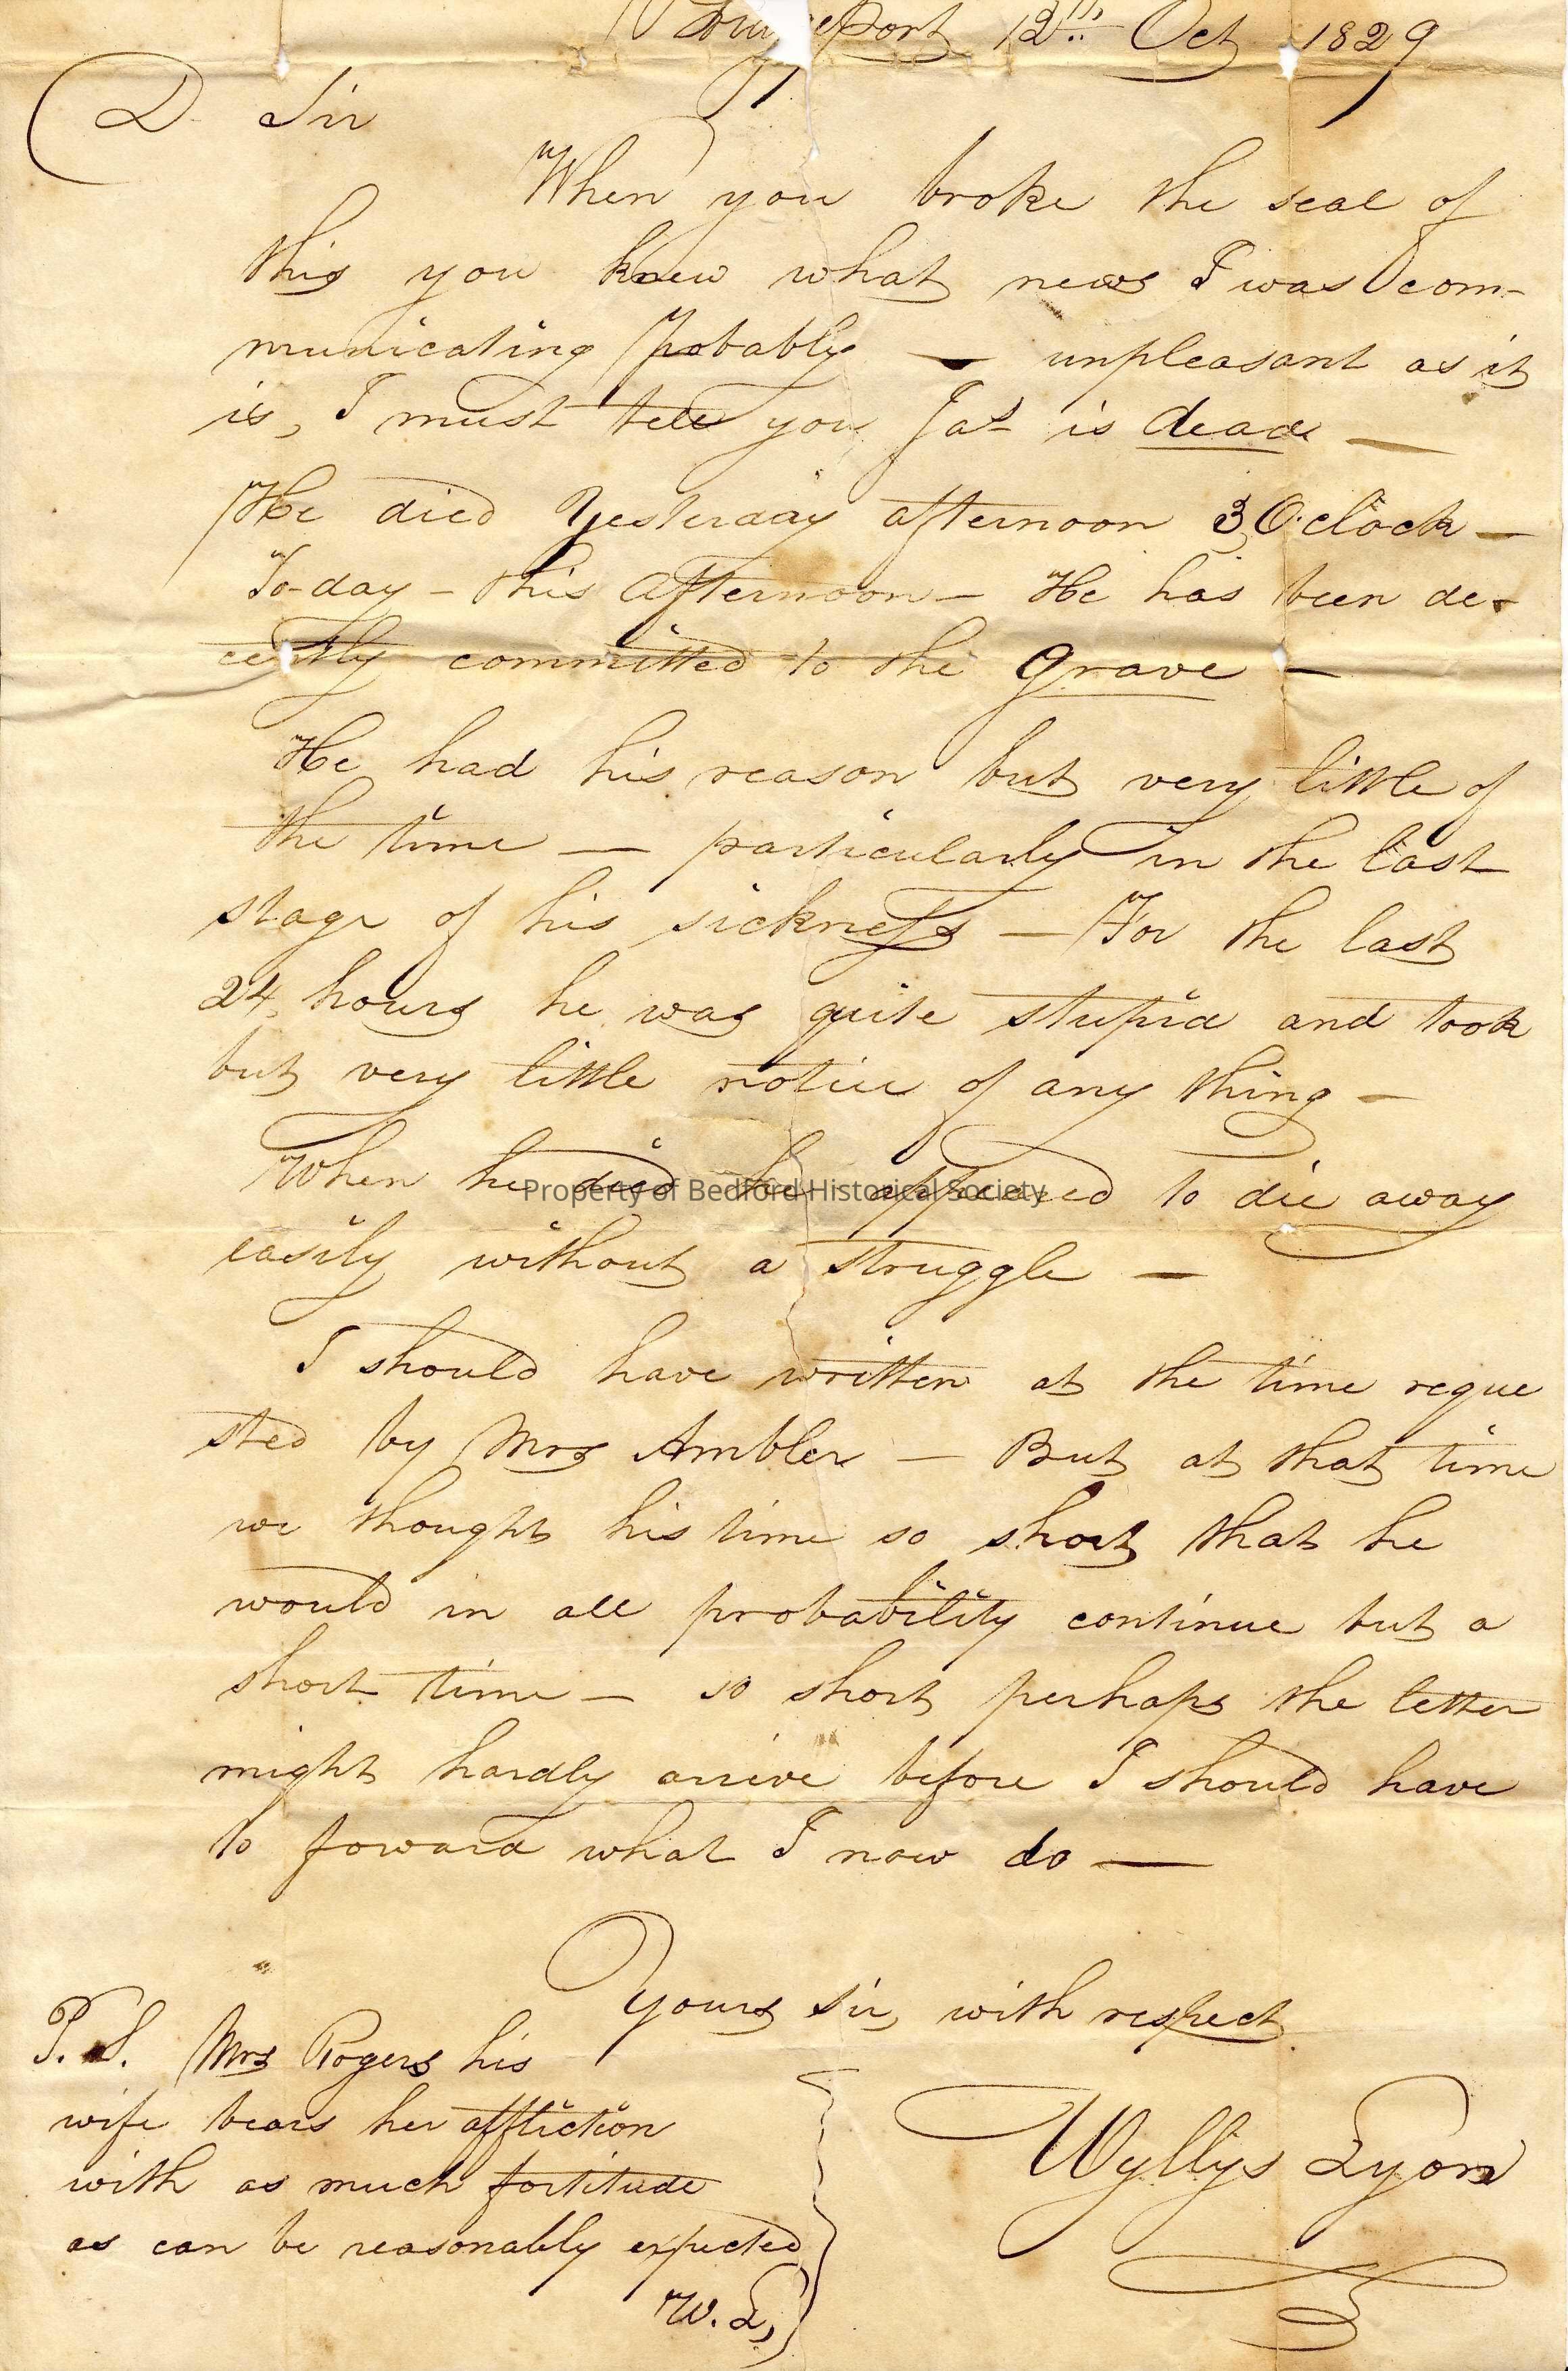 Port 12th Oct 1829
D Sir
When you broke the seal of
this you knew what news I was com-
municating probably — unpleasant as it
is, I must tell you Jas is dead —
He died Yesterday afternoon 3 O'clock —
To-day - this afternoon - He has been de-
cently committed to the grave —
He had his reason but very little of
the time — particularly in the last
stage of his sickness — For the last
24 hours he was quite stupid and took
but very little notice of any thing —
When he died he appeared to die away
Property of Bedford Historical Society
easily without a struggle —
I should have written at the time reque
sted by Mrs Ambler — But at that time
we thought his time so short that he
would in all probability continue but a
short time — so short perhaps the letter
might hardly arrive before I should have
to foward what I now do —
Yours sir, with respect
P.S. Mrs Rogers his
wife bears her affliction
with as much fortitude
as can be reasonably expected
W. L,
Wyllys Lyon